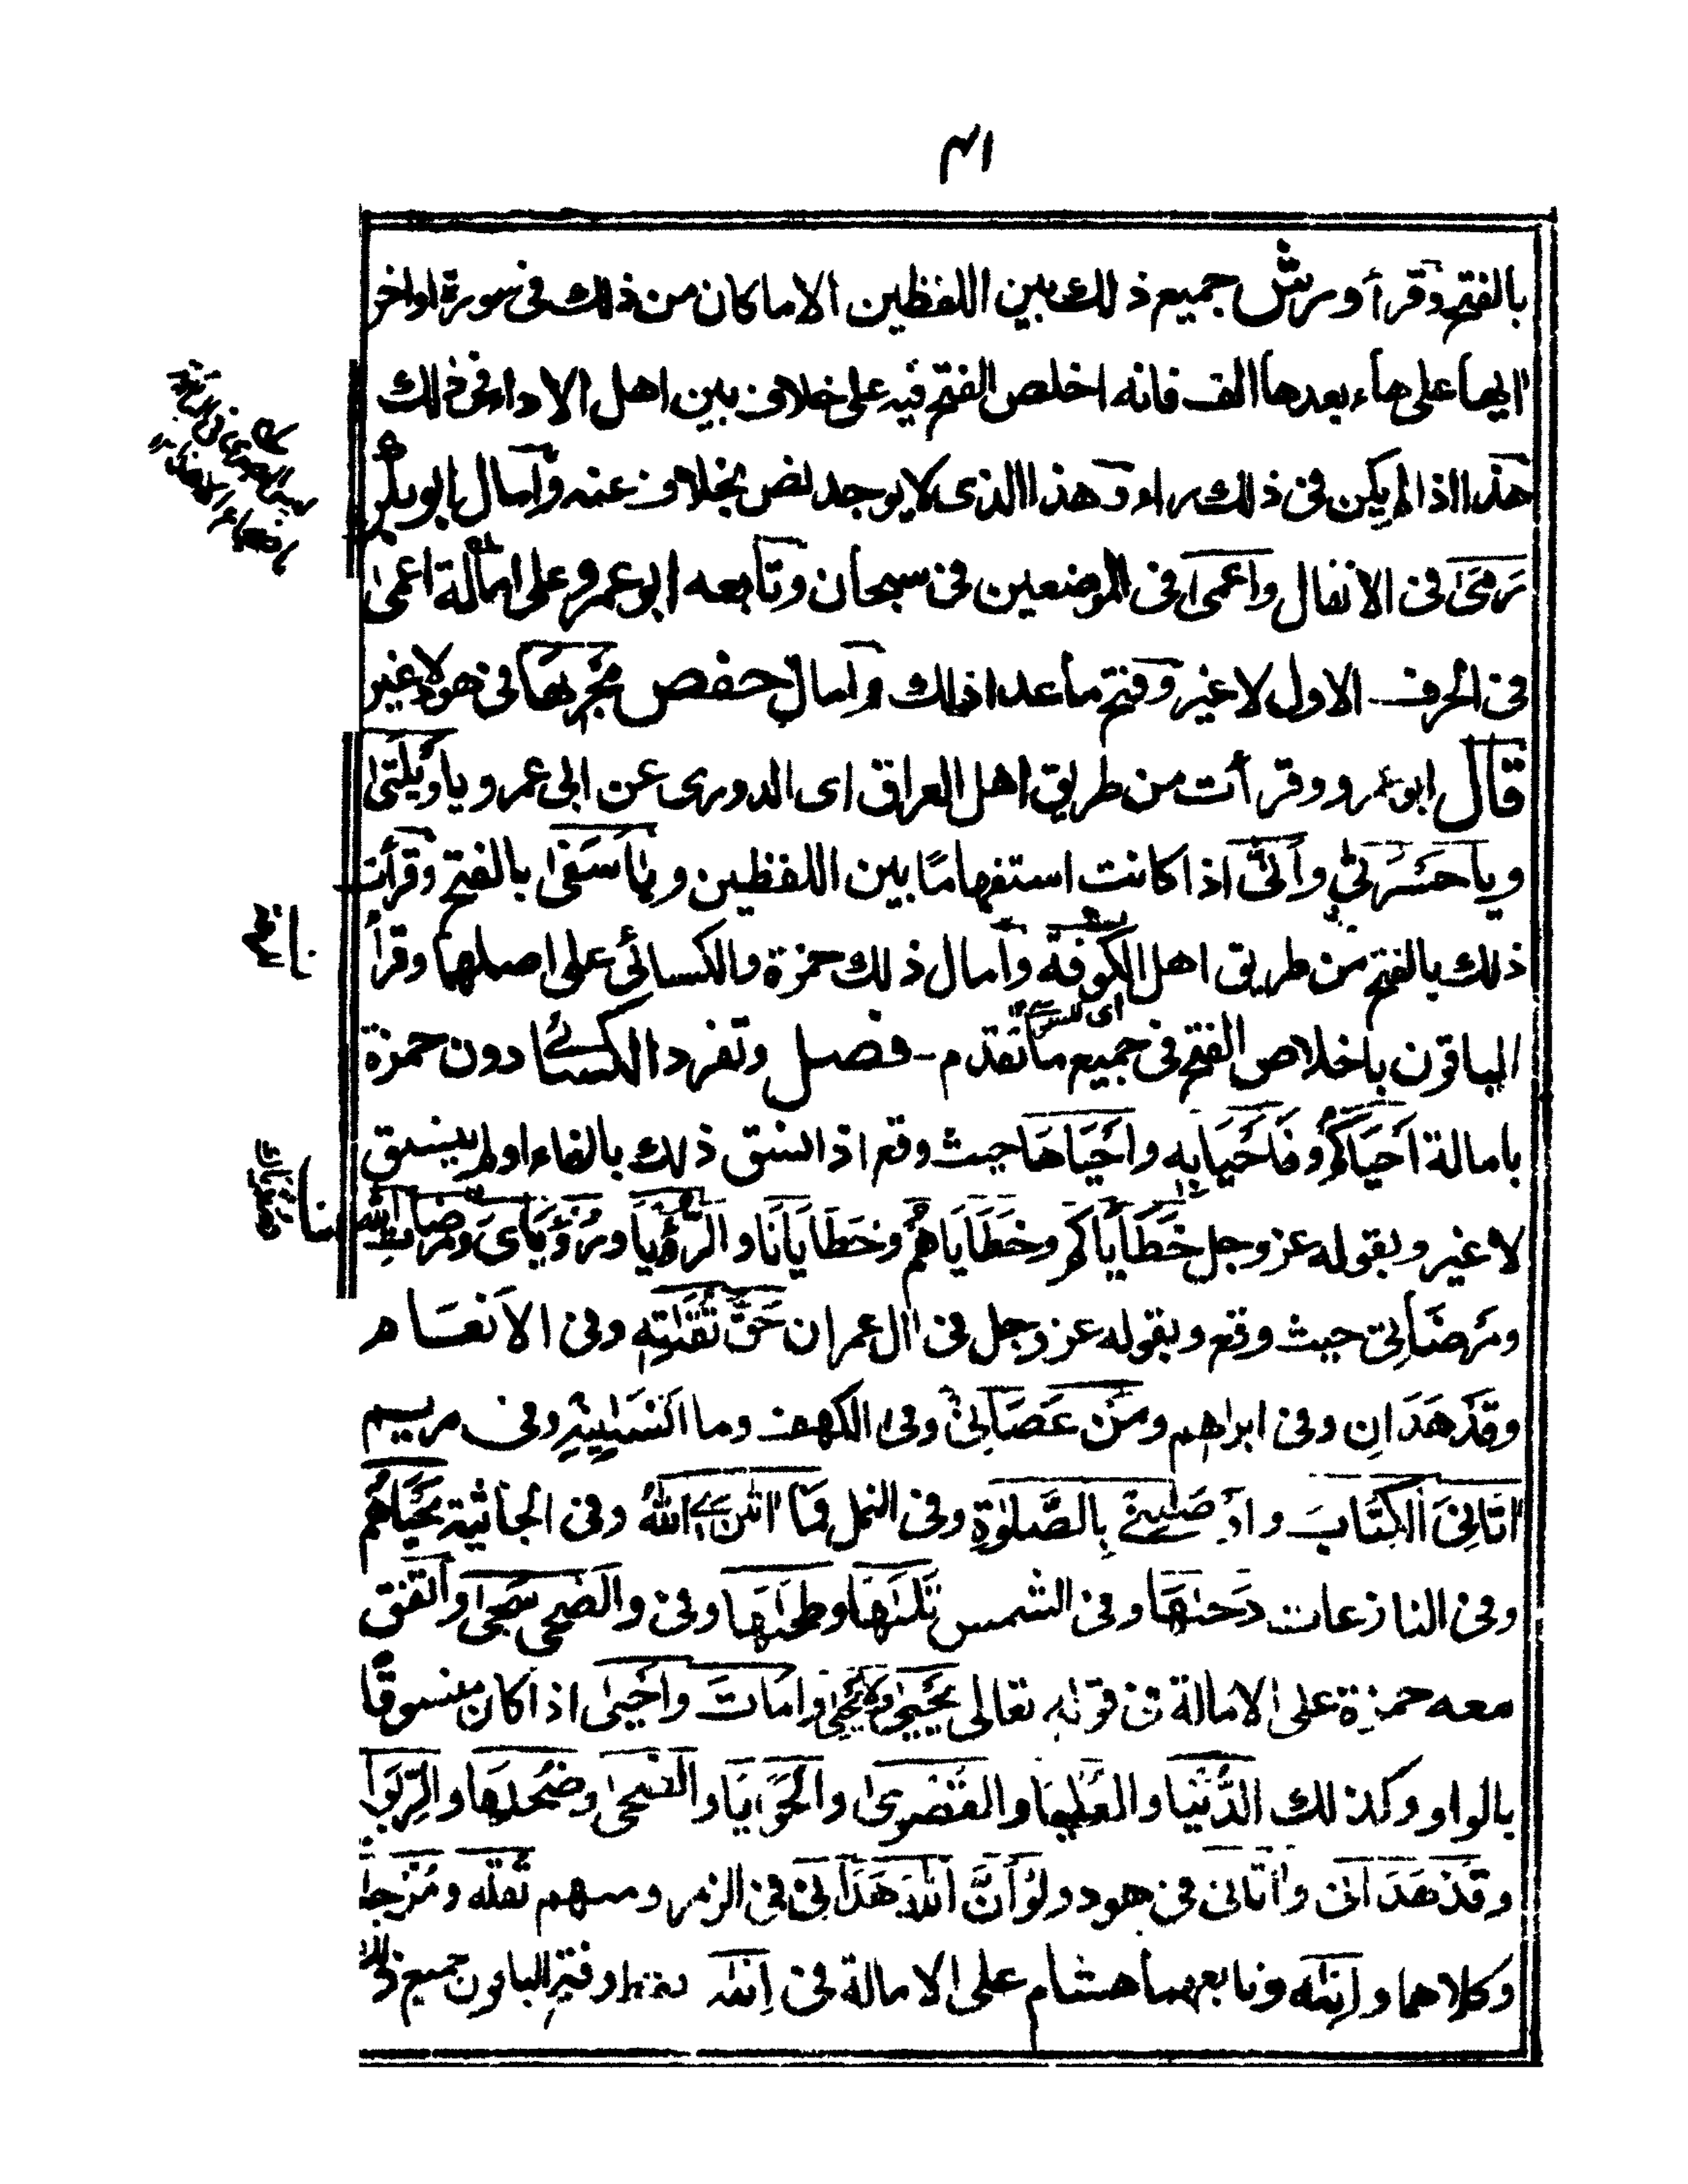 بالفتح وقرأ ورش جميع ذلك بين اللفظين الا ما كان من ذلك فى سورة اواخر
ايها على هاء بعدها الف فانه اخلص الفتح فيه على خلاف بين اهل الاداء فى ذلك
هذا اذا لم يكن فى ذلك راء وهذا الذى لا يوجد نص بخلاف عنه وأمال ابو بكر
رَمَىٰ فى الانفال واعمىٰ فى الموضعين فى سبحان وتابعه ابو عمرو على امالة اعمىٰ
فى الحرف الاول لا غير وفتح ما عدا ذلك وأمال حفص مَجْرٖىهَا فى هود لا غير
قال ابو عمرو وقرأت من طريق اهل العراق اى الدورى عن ابى عمرو ياوَيْلَتىٰ
ويا حَسْرَتىٰ وأَنّىٰ اذا كانت استفهامًا بين اللفظين ويٰاَسَفىٰ بالفتح وقرأت
ذلك بالفتح من طريق اهل الكوفة وأمال ذلك حمزة والكسائى على اصلهما وقرأ
الباقون باخلاص الفتح فى جميع ما تقدم - فصل وتفرد الكسائى دون حمزة
بامالة اَحْيَاكُمْ وفَاَحْيَا بِهِ واَحْيَاهَا حيث وقع اذا نسق ذلك بالفاء او لم ينسق
لا غير وبقوله عز وجل خَطَايَاكم وخَطَايَاهُمْ وخَطَايَانَا والرُّؤْيَا ورُؤْيَاىَ ومَرْضَاتِ اللهِ
ومَرْضَاتِى حيث وقع وبقوله عز وجل فى اٰل عمران حَقَّ تُقٰتِهٖ وفى الاَنعَام
وقَدْ هَدَانِ وفى ابراهيم ومَنْ عَصَانِىْ وفى الكهف وما اَنْسَانِيْهِ وفى مريم
اٰتَانِىَ الْكِتَابَ واَوْصَانِىْ بِالصَّلٰوةِ وفى النمل فَمَا اٰتَانِىَ اللهُ وفى الجاثية مَحْيَاهُمْ
وفى النازعات دَحٰىهَا وفى الشمس تَلٰىهَا وطَحٰىهَا وفى والضحى سَجىٰ واتفق
معه حمزة على الامالة فى قوله تعالى يَحْيىٰ ولَا يَحْيىٰ وامَاتَ واَحْيىٰ اذا كان منسوقًا
بالواو وكذلك الدُّنْيَا والعُلْيَا والقُصْوىٰ والحَوَايَا والضُّحىٰ وضُحٰىهَا والرِّبٰوا
وقَدْ هَدَانى واٰتَانى فى هود ولَوْ اَنَّ اللهَ هَدَانِىْ فى الزمر ومنهم تُقٰةً ومُزْجٰةٍ
وكلاهما واِنٰهُ وتابعهما هشام على الامالة فى اِنٰهُ وفتح الباقون جميع ذلك